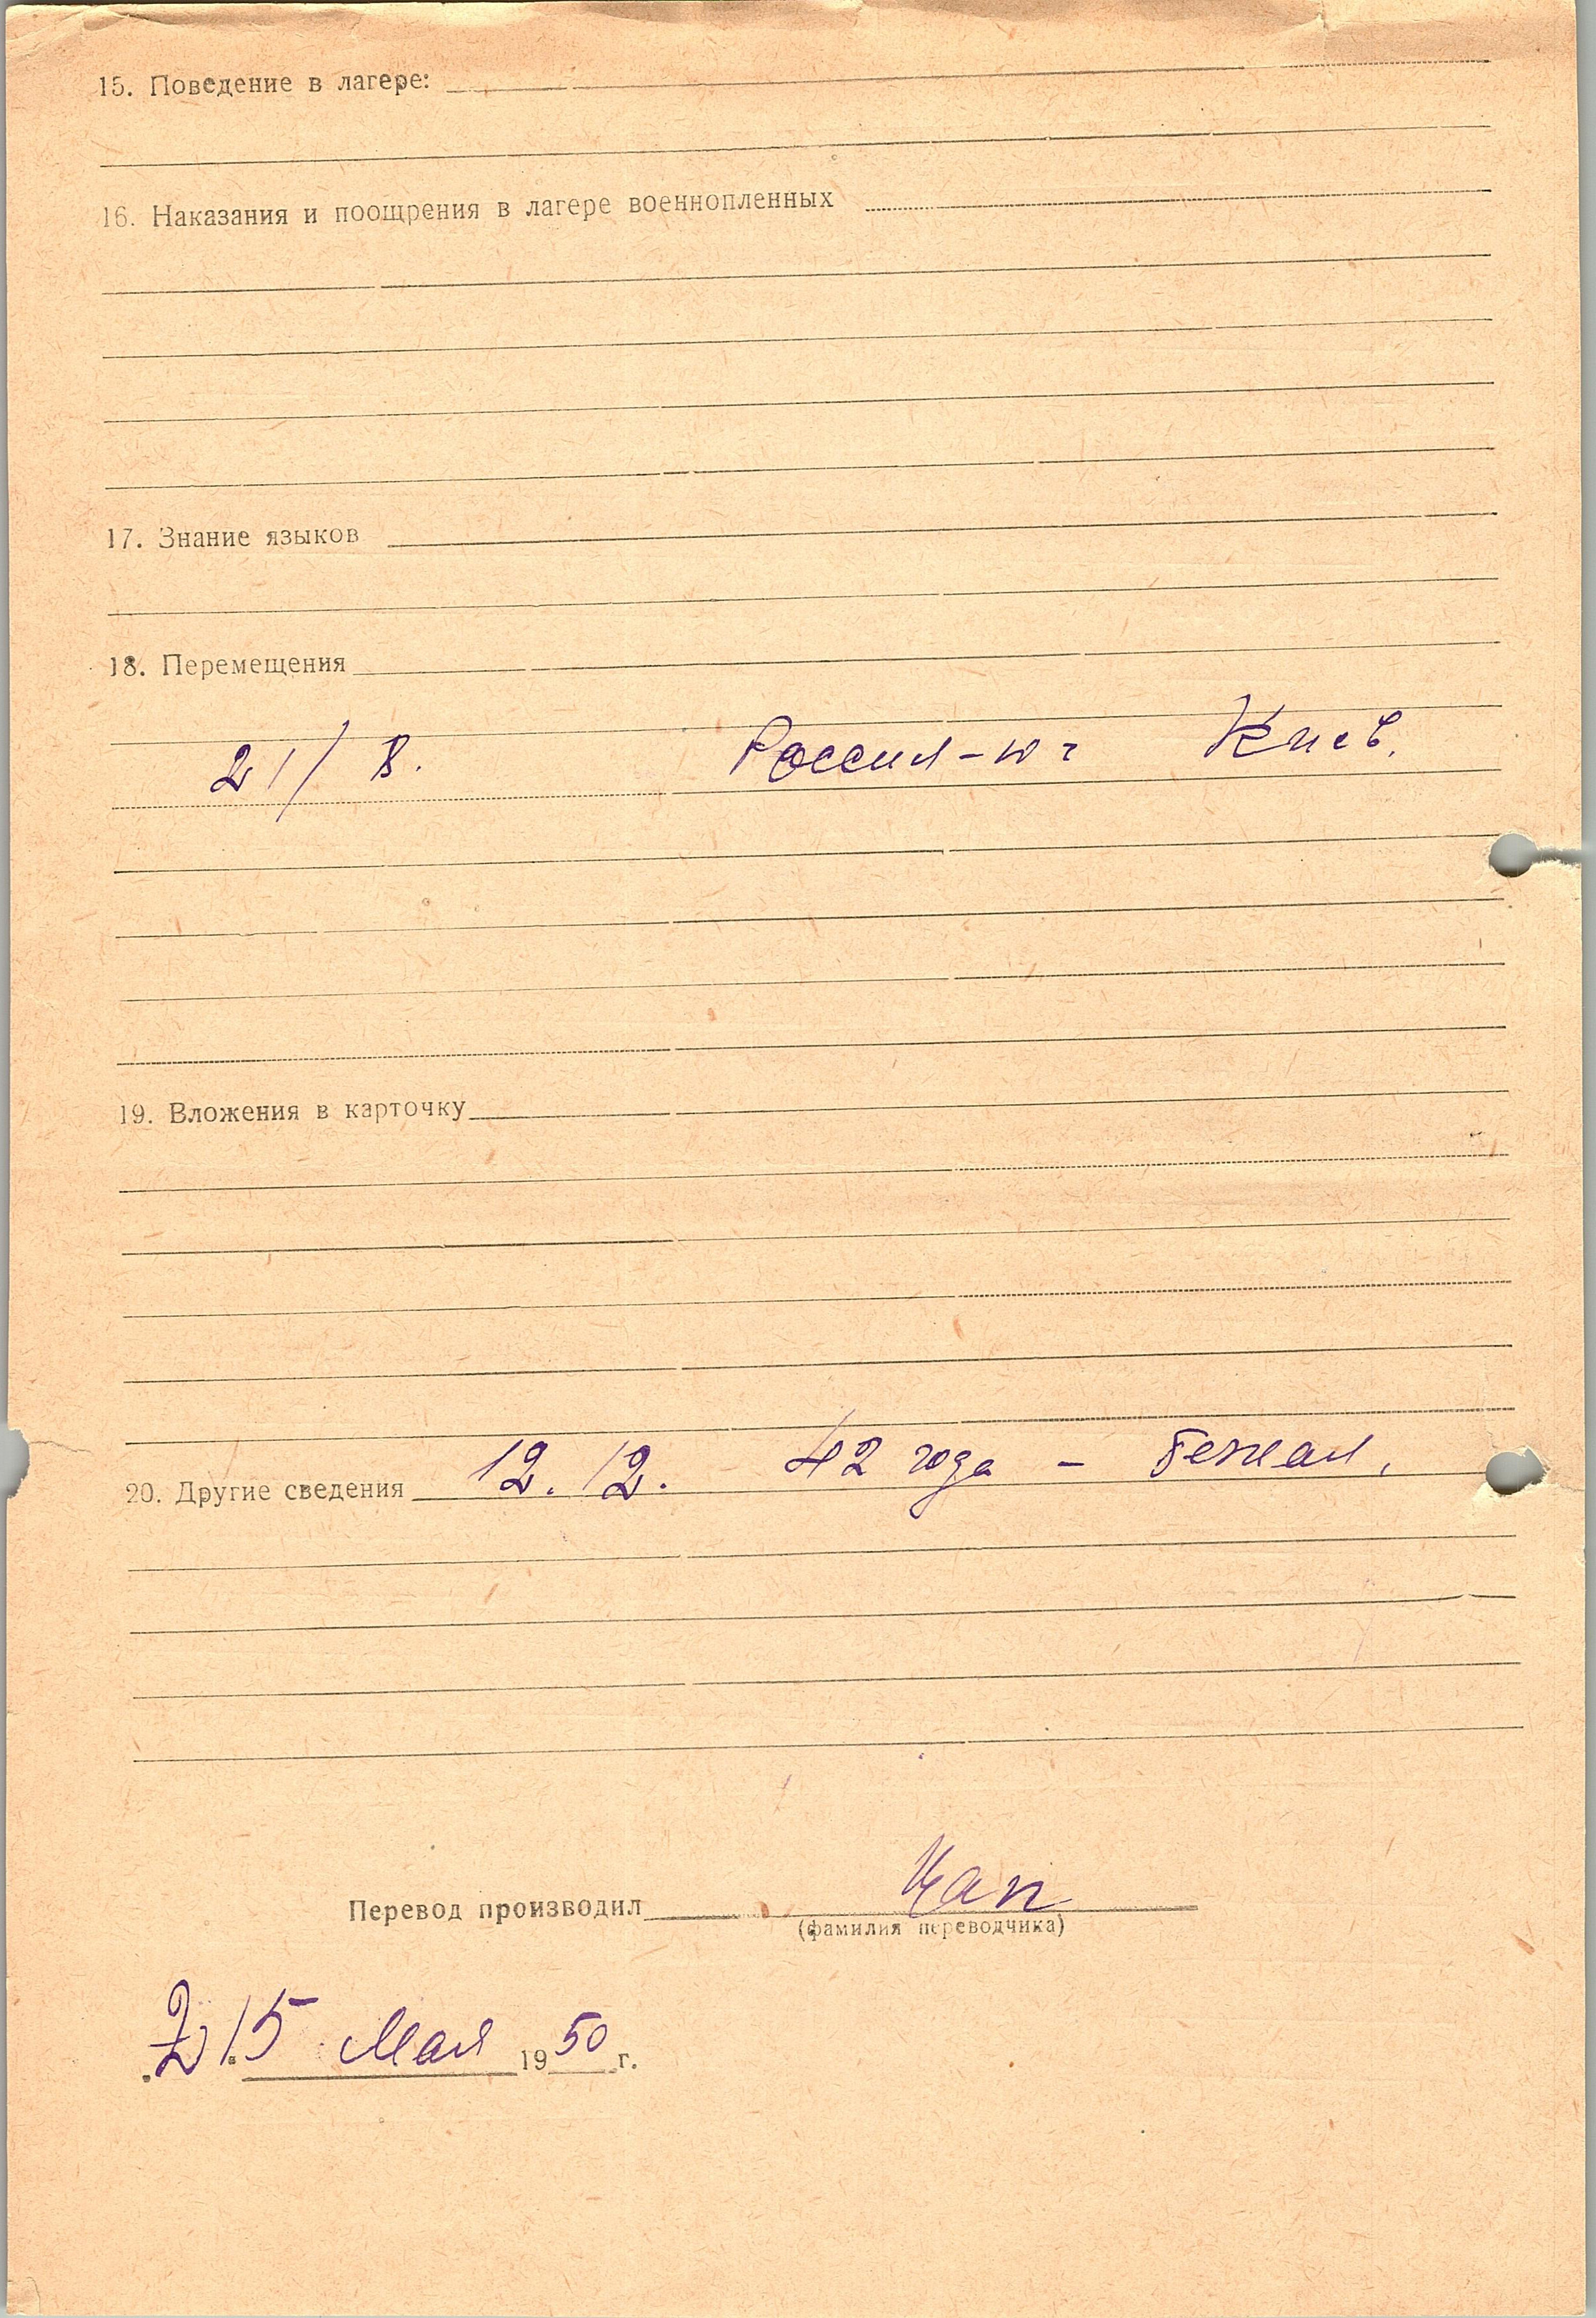 15. Поведение в лагере:
16. Наказания и поощрения в лагере военнопленных
17. Знание языков
18. Перемещения
21/ В. Россия-юг Киев.
19. Вложения в карточку
20. Другие сведения 12. 12. 42 года - Бежал.
Перевод производил Цап
(фамилия переводчика)
15 Мая 1950 г.